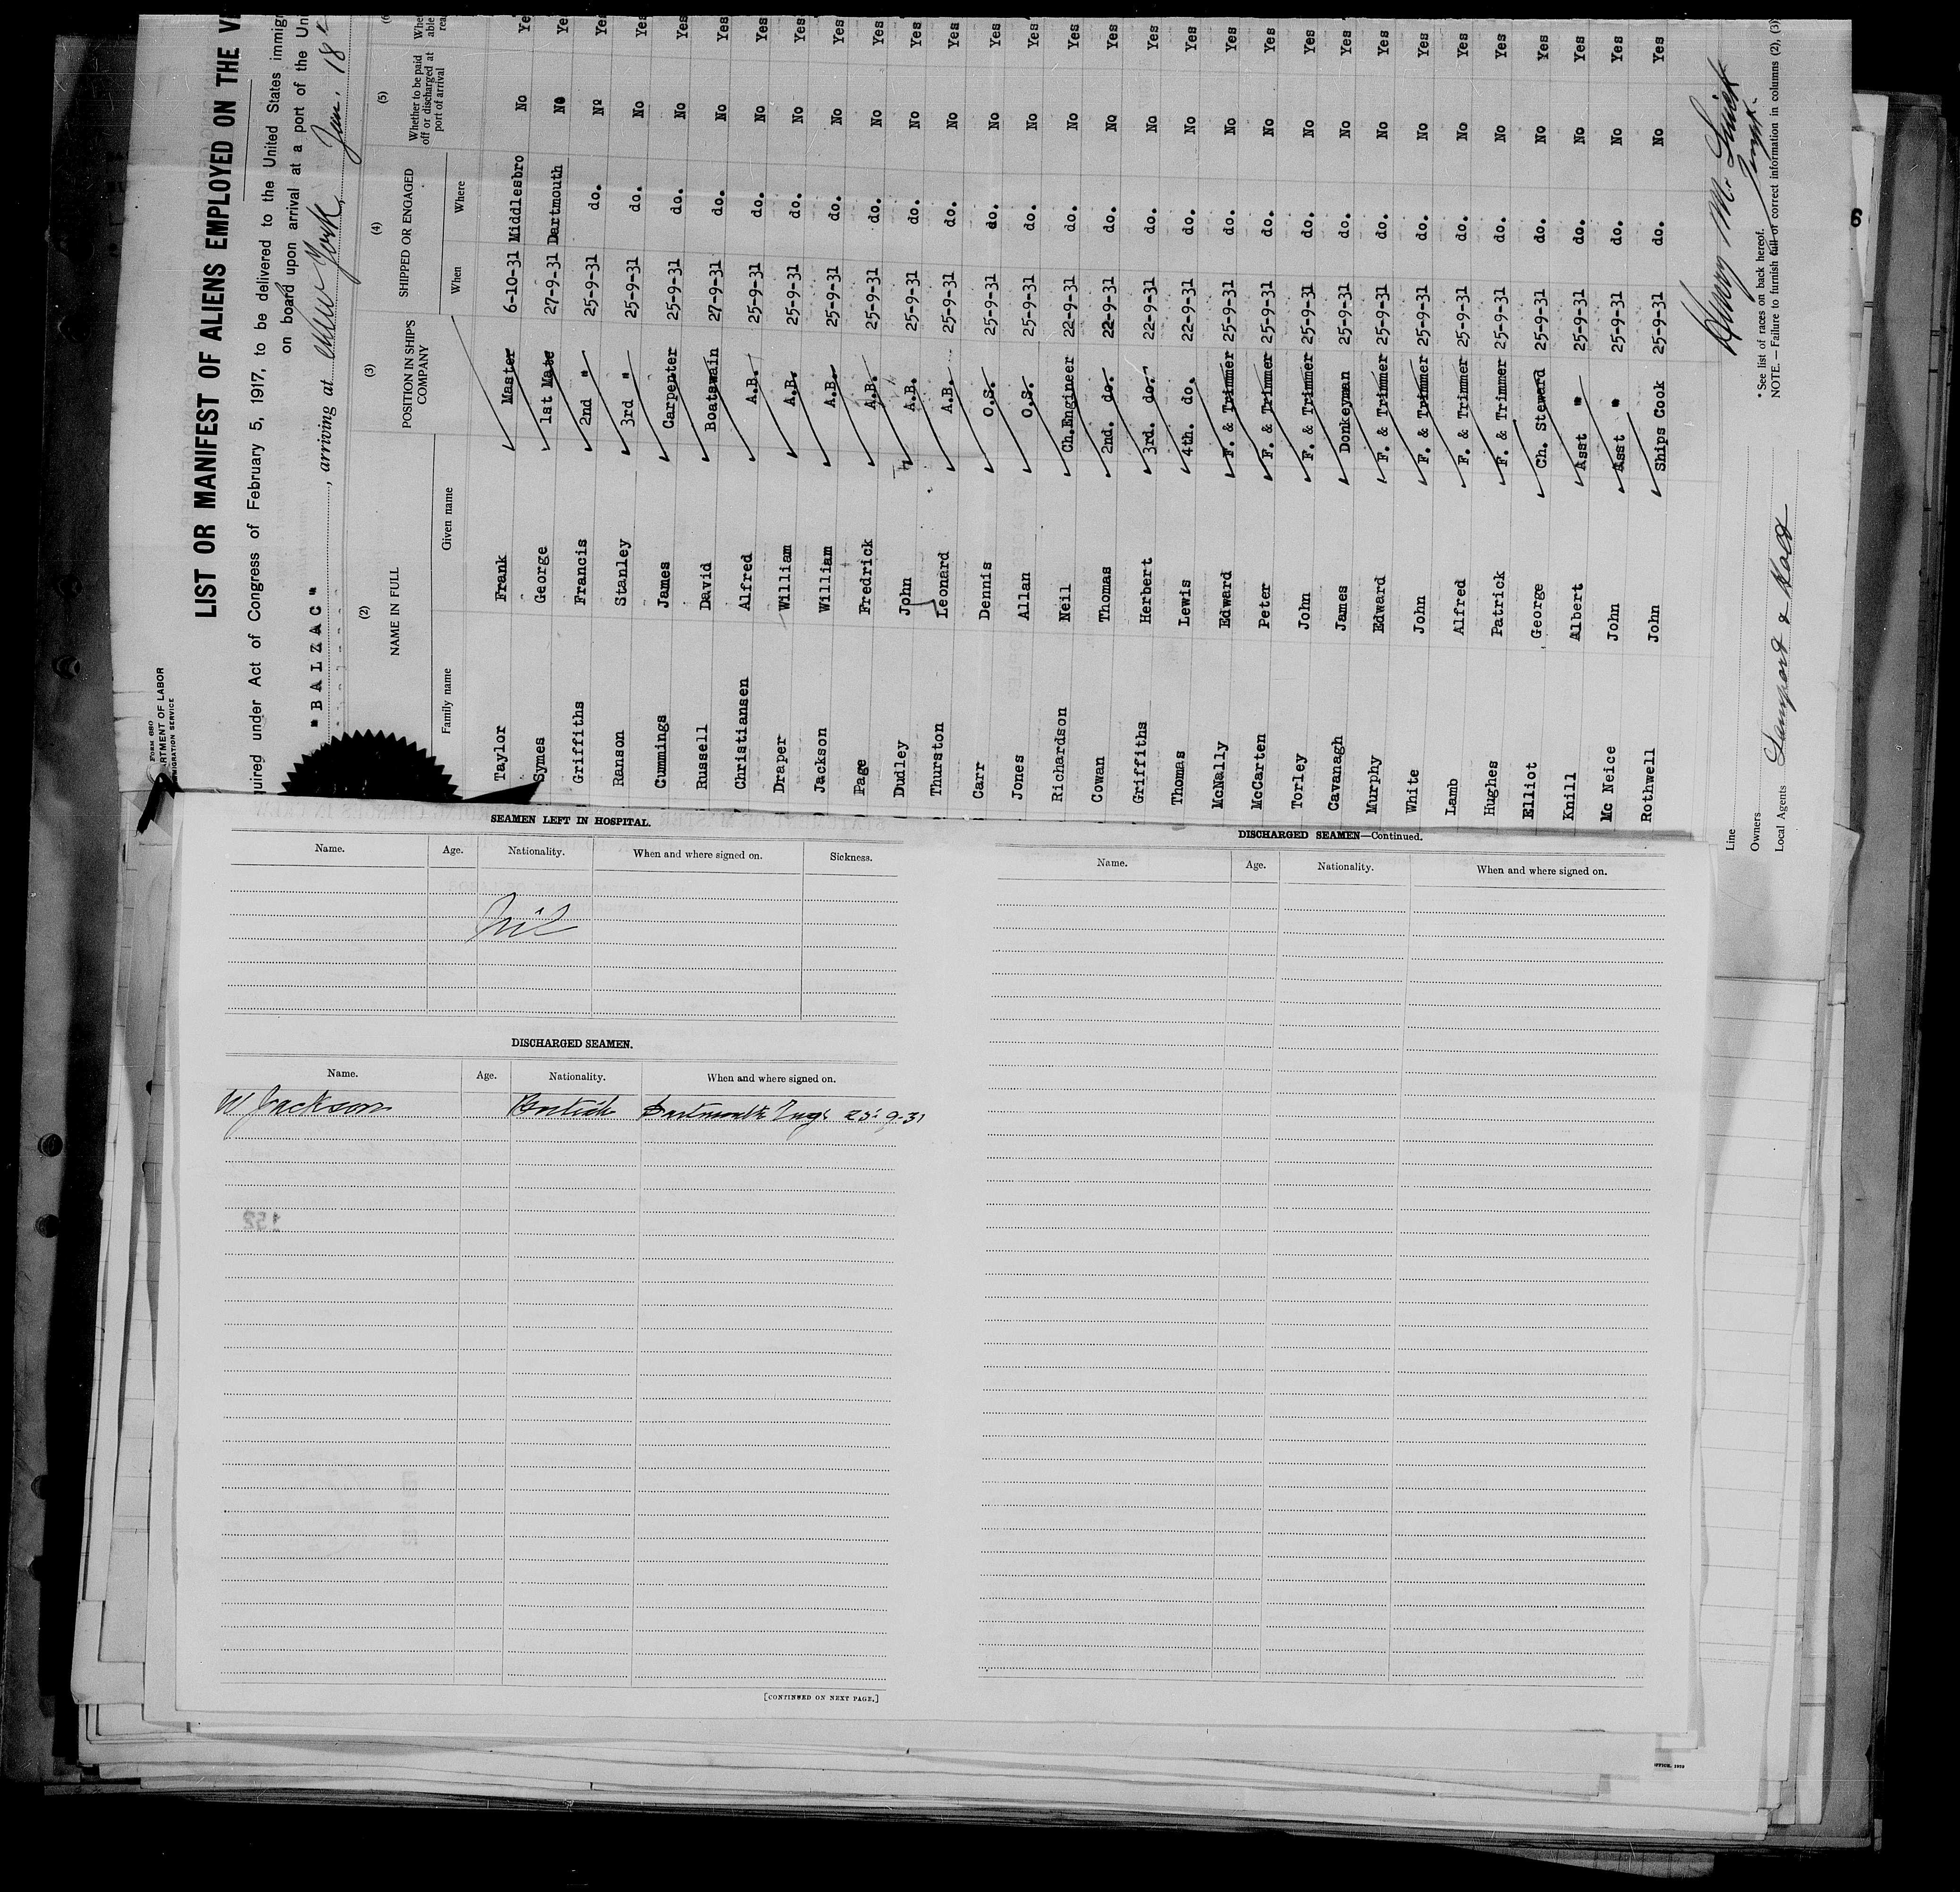 FORM 680
ARTMENT OF LABOR
MIGRATION SERVICE
LIST OR MANIFEST OF ALIENS EMPLOYED ON THE V
quired under Act of Congress of February 5, 1917, to be delivered to the United States immig
on board upon arrival at a port of the Un
"BALZAC" , arriving at New York, Jan. 18
(2) (3) (4) (5) (6
NAME IN FULL POSITION IN SHIP'S COMPANY SHIPPED OR ENGAGED Whether to be paid off or discharged at port of arrival Whe able rea
Family name Given name When Where
Taylor Frank Master 6-10-31 Middlesbro No Ye
Symes George 1st Mate 27-9-31 Dartmouth No Ye
Griffiths Francis 2nd " 25-9-31 do. No Yes
Ranson Stanley 3rd " 25-9-31 do. No Yes
Cummings James Carpenter 25-9-31 do. No Yes
Russell David Boatswain 27-9-31 do. No Yes
Christiansen Alfred A.B. 25-9-31 do. No Yes
Draper William A.B. 25-9-31 do. No Yes
Jackson William A.B. 25-9-31 do. No Yes
Page Fredrick A.B. 25-9-31 do. No Yes
Dudley John A.B. 25-9-31 do. No Yes
Thurston Leonard A.B. 25-9-31 do. No Yes
Carr Dennis O.S. 25-9-31 do. No Yes
Jones Allan O.S. 25-9-31 do. No Yes
Richardson Neil Ch.Engineer 22-9-31 do. No Yes
Cowan Thomas 2nd. do. 22-9-31 do. No Yes
Griffiths Herbert 3rd. do. 22-9-31 do. No Yes
Thomas Lewis 4th. do. 22-9-31 do. No Yes
McNally Edward F. & Trimmer 25-9-31 do. No Yes
McCarten Peter F. & Trimmer 25-9-31 do. No Yes
Torley John F. & Trimmer 25-9-31 do. No Yes
Cavanagh James Donkeyman 25-9-31 do. No Yes
Murphy Edward F. & Trimmer 25-9-31 do. No Yes
White John F. & Trimmer 25-9-31 do. No Yes
Lamb Alfred F. & Trimmer 25-9-31 do. No Yes
Hughes Patrick F. & Trimmer 25-9-31 do. No Yes
Elliot George Ch. Steward 25-9-31 do. No Yes
Knill Albert Asst " 25-9-31 do. No Yes
Mc Neice John Asst " 25-9-31 do. No Yes
Rothwell John Ships Cook 25-9-31 do. No Yes
Line
Owners
Local Agents Lamport & Holt
Henry M.
*See list of races on back hereof.
NOTE.—Failure to furnish full or correct information in columns (2), (3)
6
SEAMEN LEFT IN HOSPITAL.
Name. Age. Nationality. When and where signed on. Sickness.
Nil
DISCHARGED SEAMEN.
Name. Age. Nationality. When and where signed on.
W Jackson British Dartmouth Eng. 25-9-31
152
[CONTINUED ON NEXT PAGE.]
DISCHARGED SEAMEN—Continued.
Name. Age. Nationality. When and where signed on.